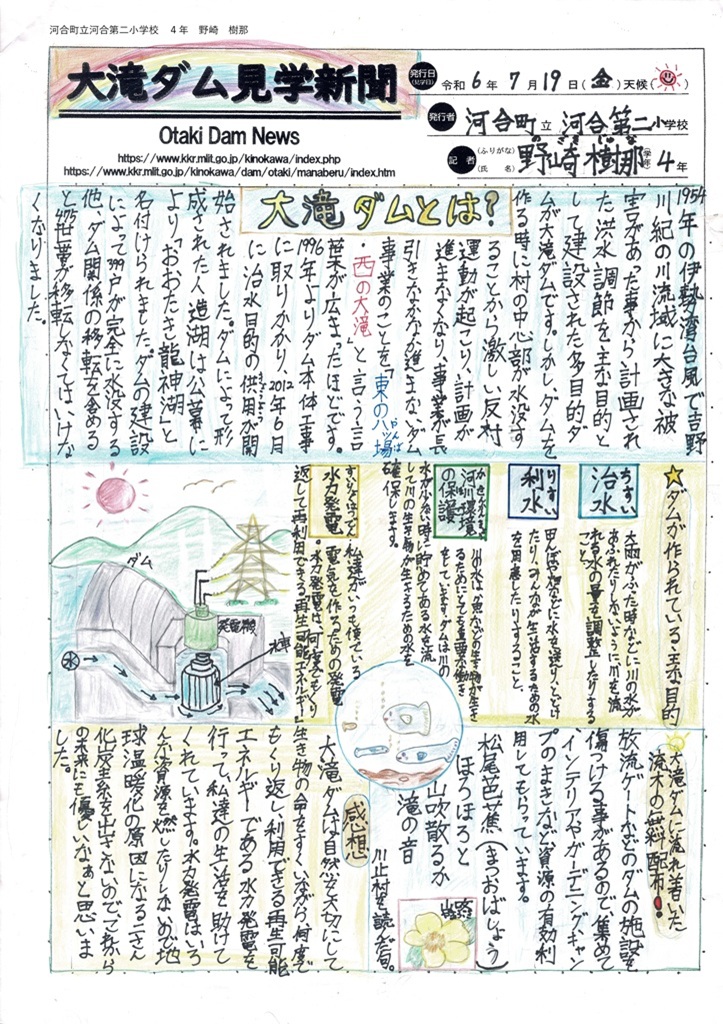 河合町立河合第二小学校　４年　野崎　樹那
大滝ダム見学新聞
Otaki Dam News
https://www.kkr.mlit.go.jp/kinokawa/index.php
https://www.kkr.mlit.go.jp/kinokawa/dam/otaki/manaberu/index.htm
発行日 令和6年7月19日(金)天候
発行者 河合町立 河合第二小学校
記者 (ふりがな) のざきじゅな
(氏名) 野崎樹那 (学年) 4年
大滝ダムとは?
1954年の伊勢湾台風で吉野
川紀の川流域に大きな被
害があった事から計画され
た洪水調節を主な目的と
して建設された多目的ダ
ムが大滝ダムです。しかし、ダムを
作る時に村の中心部が水没す
ることから激しい反対
運動が起こり、計画が
進まなくなり、事業が長
引きなかなか進まないダム
事業のことを「東の八ッ場
・西の大滝」と言う言
葉が広まったほどです。
1996年よりダム本体工事
に取りかかり2012年6月
に治水目的の供用が開
始されました。ダムによって形
成された人造湖は公募に
より「おおたき龍神湖」と
名付けられました。ダムの建設
によって399戸が完全に水没する
他、ダム関係の移転を含める
と475世帯が移転しなくてはいけな
くなりました。
★ダムが作られている主な目的
ちすい
治水
大雨がふった時などに川の水が
あふれたりしないように川を流
れる水の量を調整したりする
こと。
りすい
利水
田んぼや畑などに水を送りとどけ
たり、みんなが生活するための水
を用意したりすること。
河川環境
の保護
川の水は、魚などの生き物が生き
るためにとても重要な働き
をしています。ダムは川の
水が少ない時に貯めてある水を流
して川の生き物が生きるための水を
確保します。
すいりょくはつでん
水力発電
私達がいつも使っている
電気を作るための発電
。水力発電は、何度でもくり
返して再利用できる再生可能エネルギー
ダム
発電機
水車
水
大滝ダムに流れ着いた
流木の無料配布!
放流ゲートなどのダムの施設を
傷つける事があるので、集めて
インテリアやガーデニング、キャン
プのまきなど資源の有効利
用してもらっています。
松尾芭蕉(まつおばしょう)
ほろほろと
山吹散るか
滝の音
川上村を読んだ句。
山吹
感想
大滝ダムは自然を大切にして
生き物の命をすくいながら、何度で
もくり返し利用できる再生可能
エネルギーである水力発電を
行って、私達の生活を助けて
くれています。水力発電はいろ
んな資源を燃したりしないので地
球温暖化の原因になる二さん
化炭素を出さないので、これから
の未来にも優しいなぁと思いま
した。